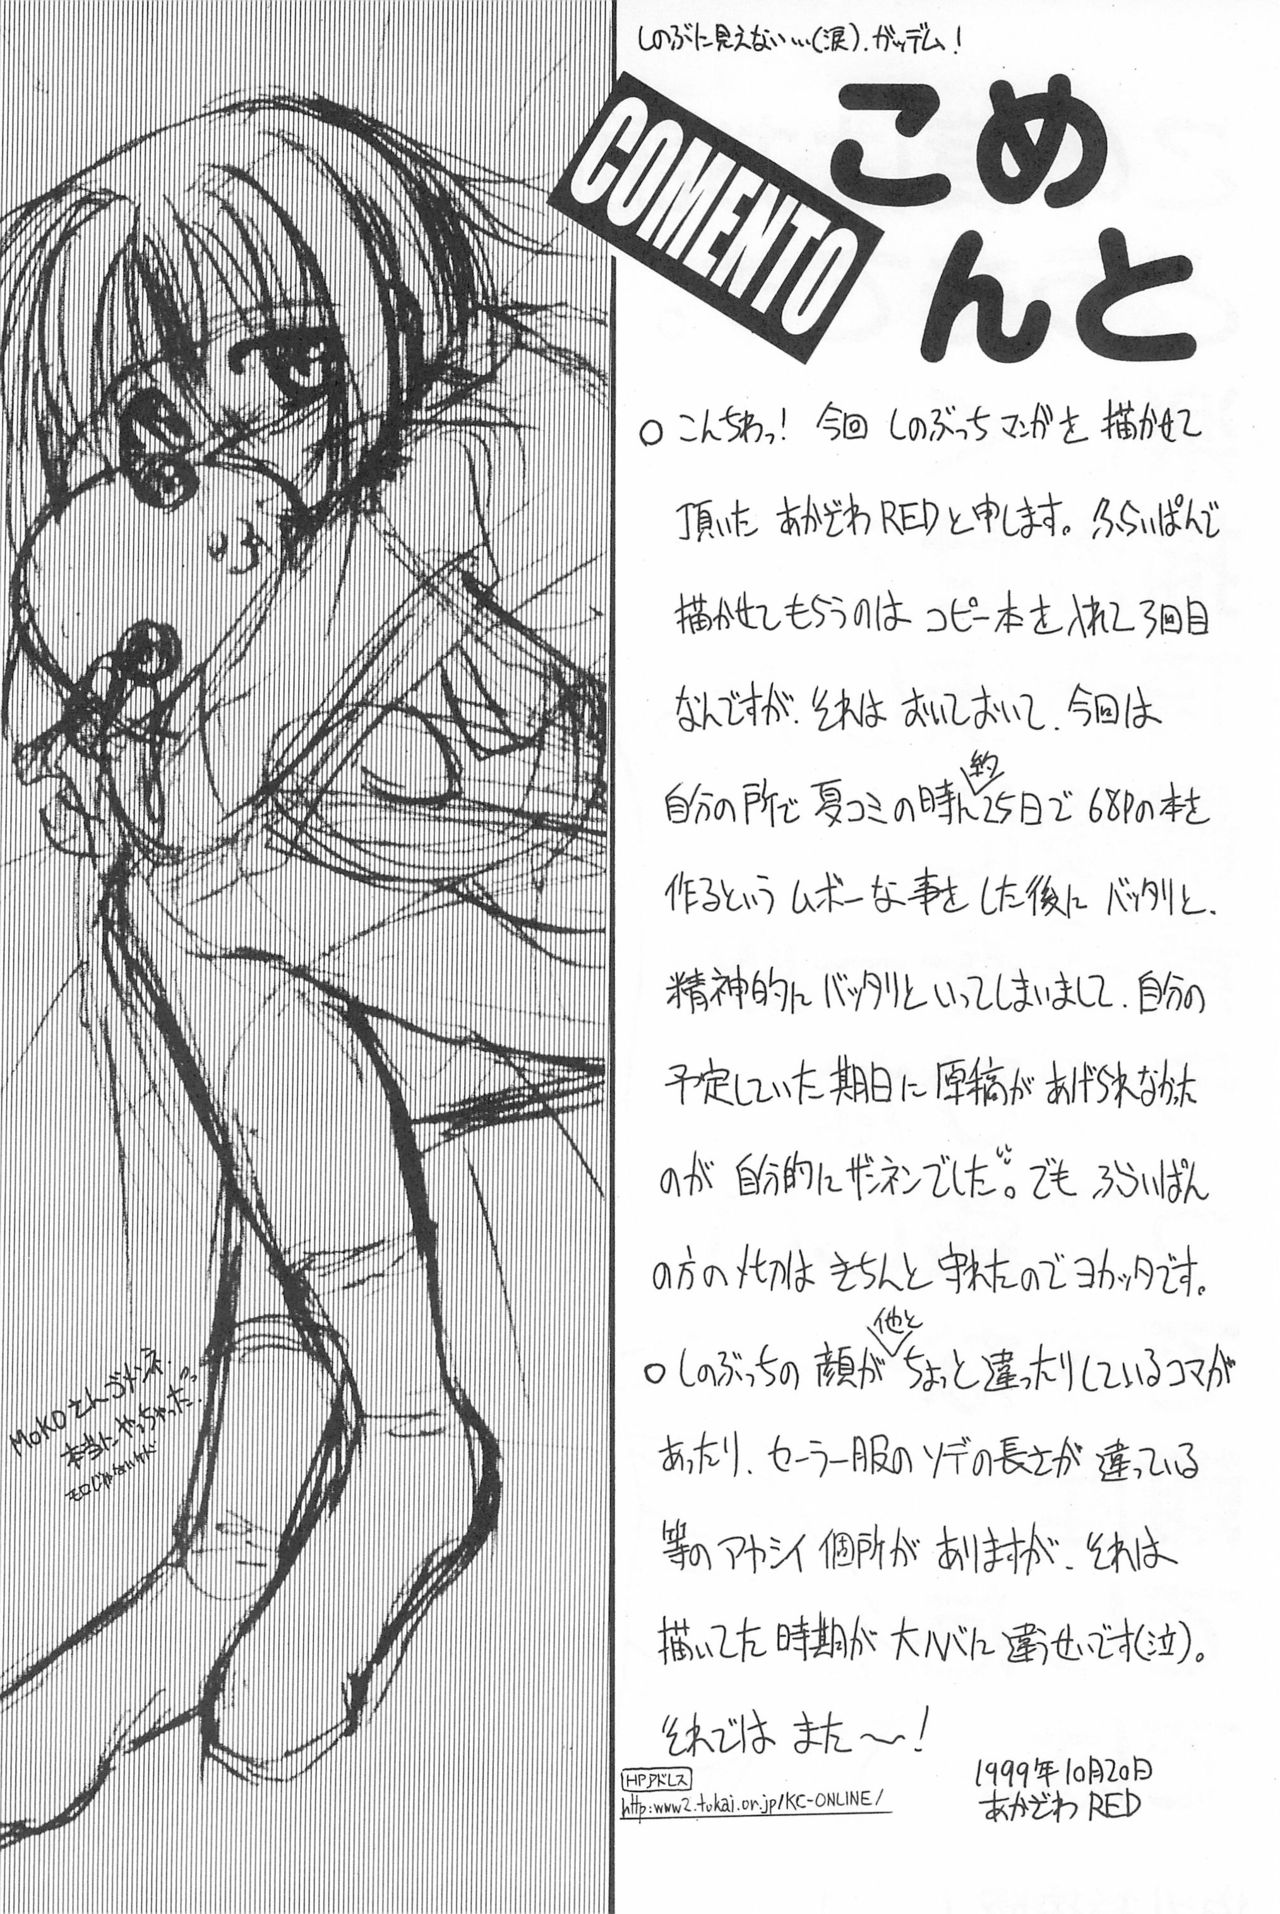 しのぶに見えない…(涙).ガッデム!
こめ
んと
COMENTO
○こんちわっ! 今回 しのぶっちマンガを 描かせて
頂いた あかざわREDと申します。ふらいぱんで
描かせてもらうのは コピー本を入れて3回目
なんですが、それは おいておいて、今回は
自分の所で 夏コミの時に約25日で 68Pの本を
作るという ムボーな事を した後に バッタリと、
精神的に バッタリと いってしまいまして、自分の
予定していた 期日に 原稿が あげられなかった
のが 自分的に ザンネンでした。でも ふらいぱん
の方の〆切は きちんと 守れたのでヨカッタです。
○しのぶっちの 顔が他とちょっと違ったりしているコマが
あったり、セーラー服のソデの長さが 違っている
等のアヤシイ 個所が ありますが、それは
描いてた 時期が 大ハバに 違うせいです(泣)。
それでは また〜!
1999年10月20日
あかざわ RED
HPアドレス
http:www2.tokai.or.jp/KC-ONLINE/
MOKOさんゴメンネ、
本当にやっちゃった
モロじゃないけド